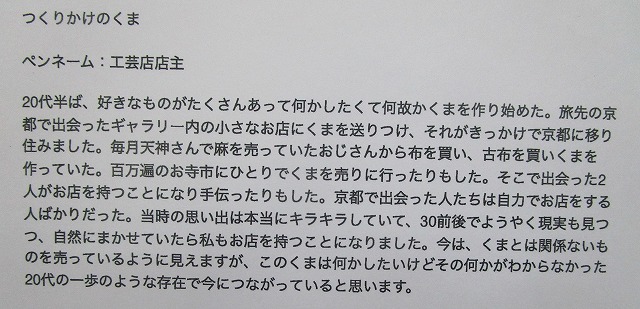 つくりかけのくま
ペンネーム：工芸店店主
20代半ば、好きなものがたくさんあって何かしたくて何故かくまを作り始めた。旅先の京
都で出会ったギャラリー内の小さなお店にくまを送りつけ、それがきっかけで京都に移り
住みました。毎月天神さんで麻を売っていたおじさんから布を買い、古布を買いくまを
作っていた。百万遍のお寺市にひとりでくまを売りに行ったりもした。そこで出会った2
人がお店を持つことになり手伝ったりもした。京都で出会った人たちは自力でお店をする
人ばかりだった。当時の思い出は本当にキラキラしていて、30前後でようやく現実も見つ
つ、自然にまかせていたら私もお店を持つことになりました。今は、くまとは関係ないも
のを売っているように見えますが、このくまは何かしたいけどその何かがわからなかった
20代の一歩のような存在で今につながっていると思います。